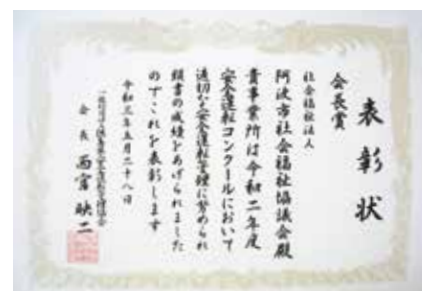 表彰状
会長賞
社会福祉法人
阿波市社会福祉協議会殿
貴事業所は令和二年度
安全運転コンクールにおいて
適切な安全運転管理に努められ
頭書の成績をあげられました
のでこれを表彰します
令和三年五月二十八日
会長 西宮映二